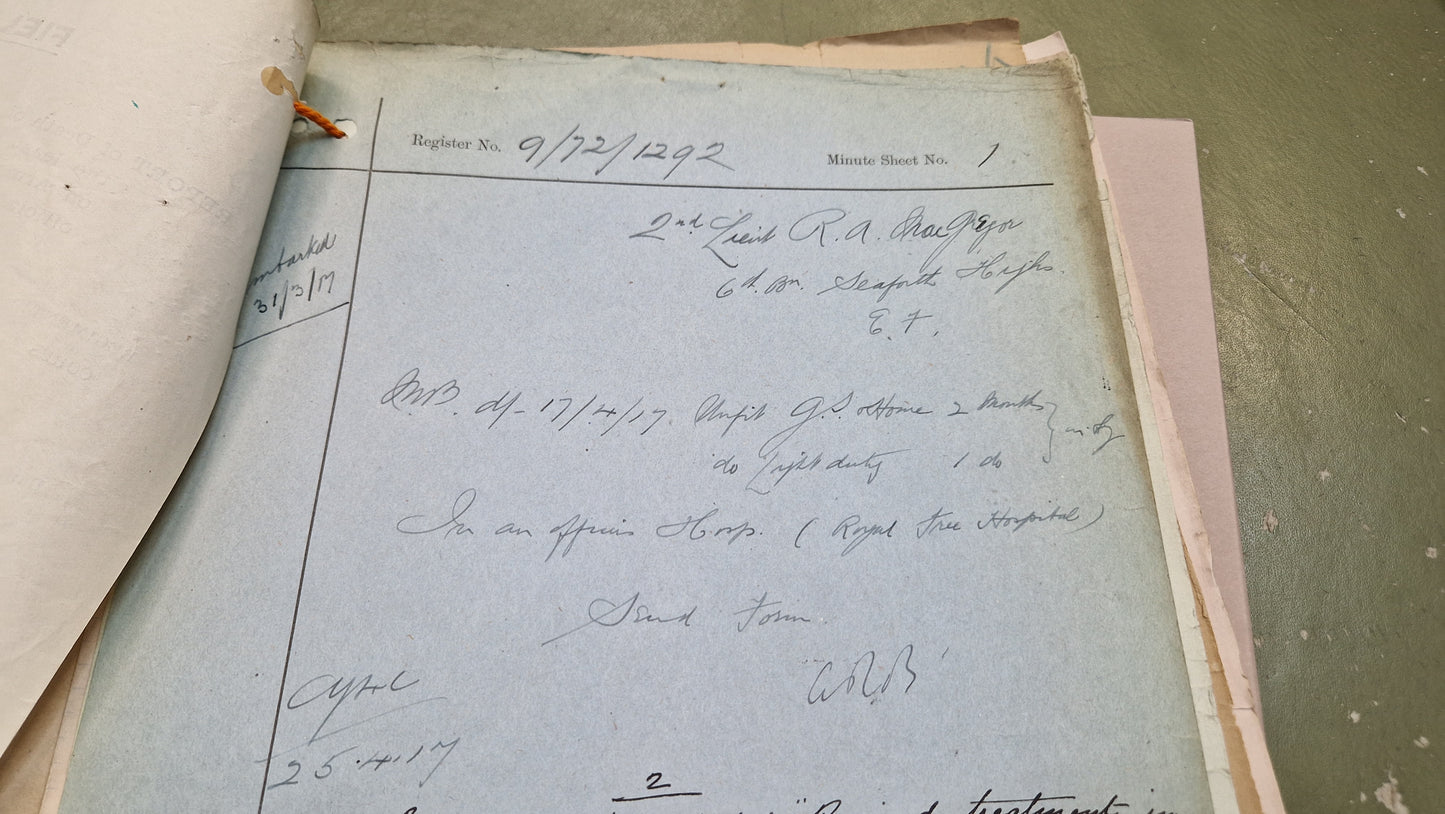 Register No. 9/72/1292 Minute Sheet No. 1
2nd Lieut R. A. MacGregor
6th Bn. Seaforth Highs.
E. F.
embarked
31/3/17
M.B. d/- 17/4/17. Unfit G.S. & Home 2 Months
do Light duty 1 do
In an officers Hosp. (Royal Free Hospital)
Send Form.
25.4.17
2
treatment in